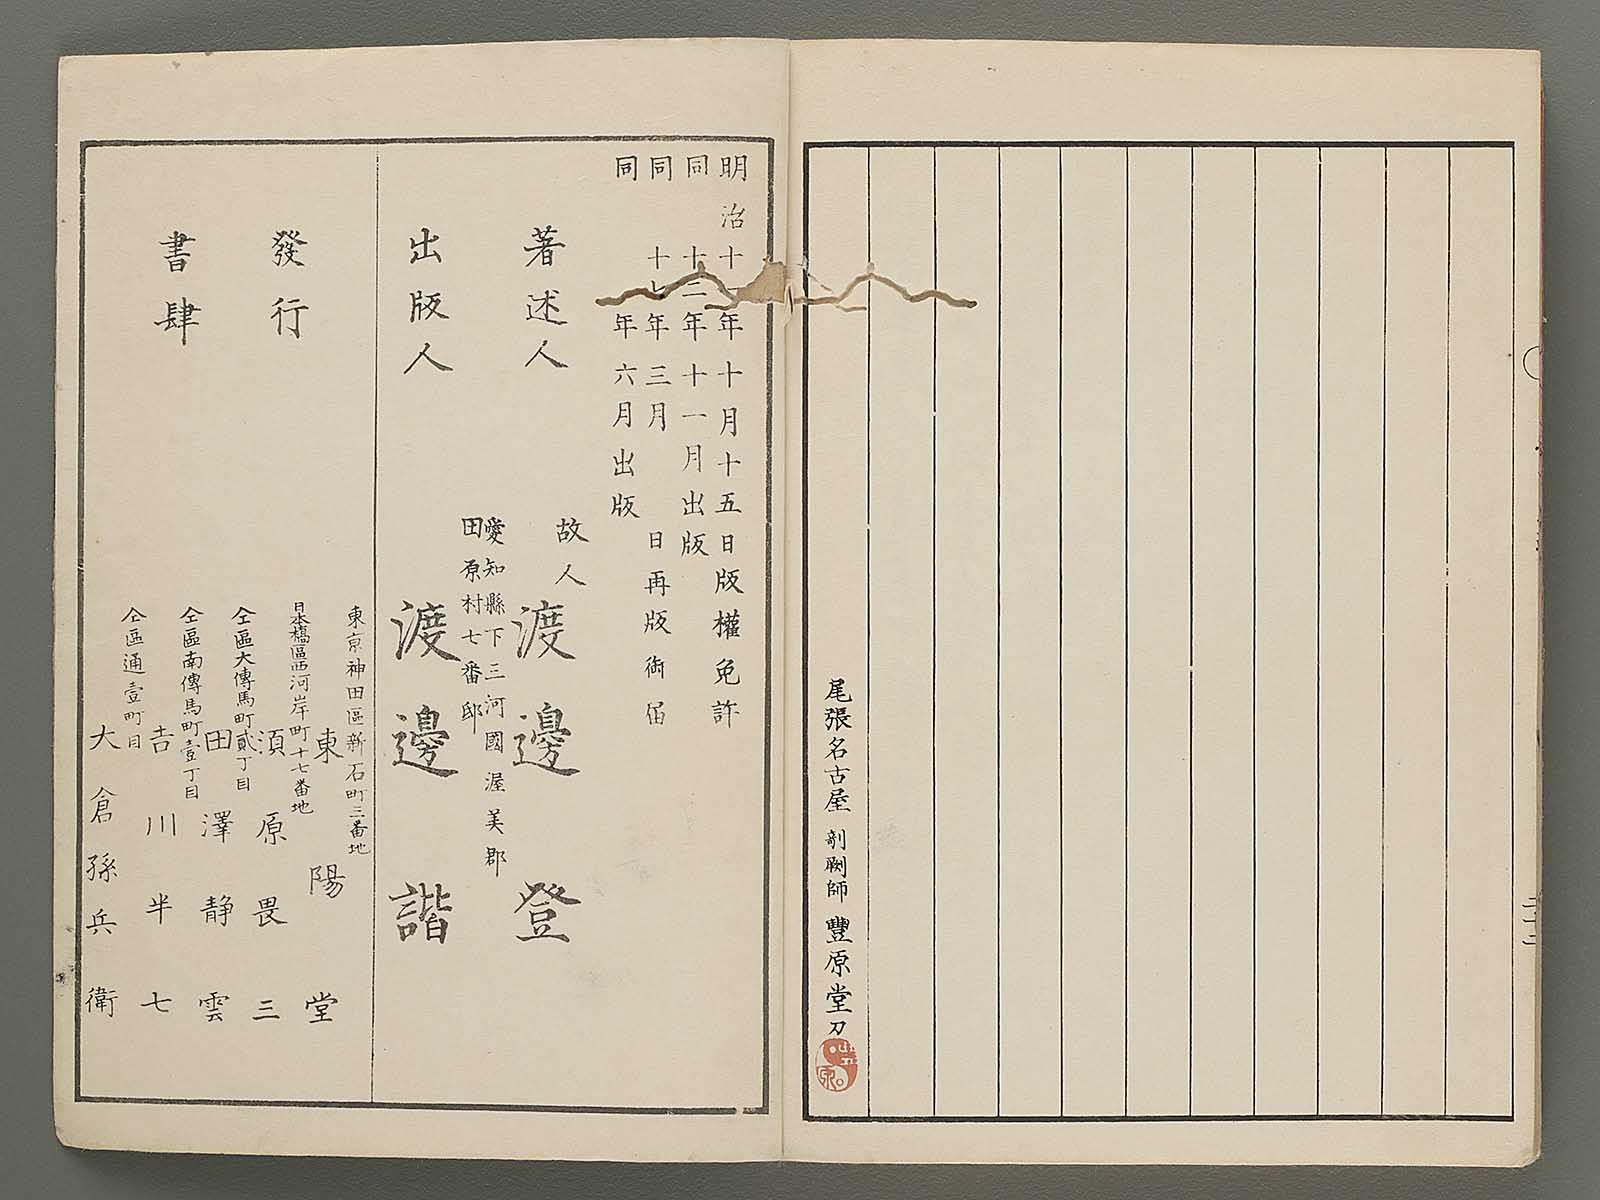 二十二
尾張名古屋 剞劂師 豐原堂刀
明治十 年十月十五日版權免許
同 十二年十一月出版
同 十七年三月 日再版御届
同 年六月出版
著述人 故人 渡邊登
愛知縣下三河國渥美郡
田原村七番邸
出版人 渡邊諧
發行
書肆
東京神田區新石町三番地
東陽堂
日本橋區西河岸町十七番地
須原畏三
仝區大傳馬町貳丁目
田澤静雲
仝區南傳馬町壹丁目
吉川半七
仝區通壹町目
大倉孫兵衛